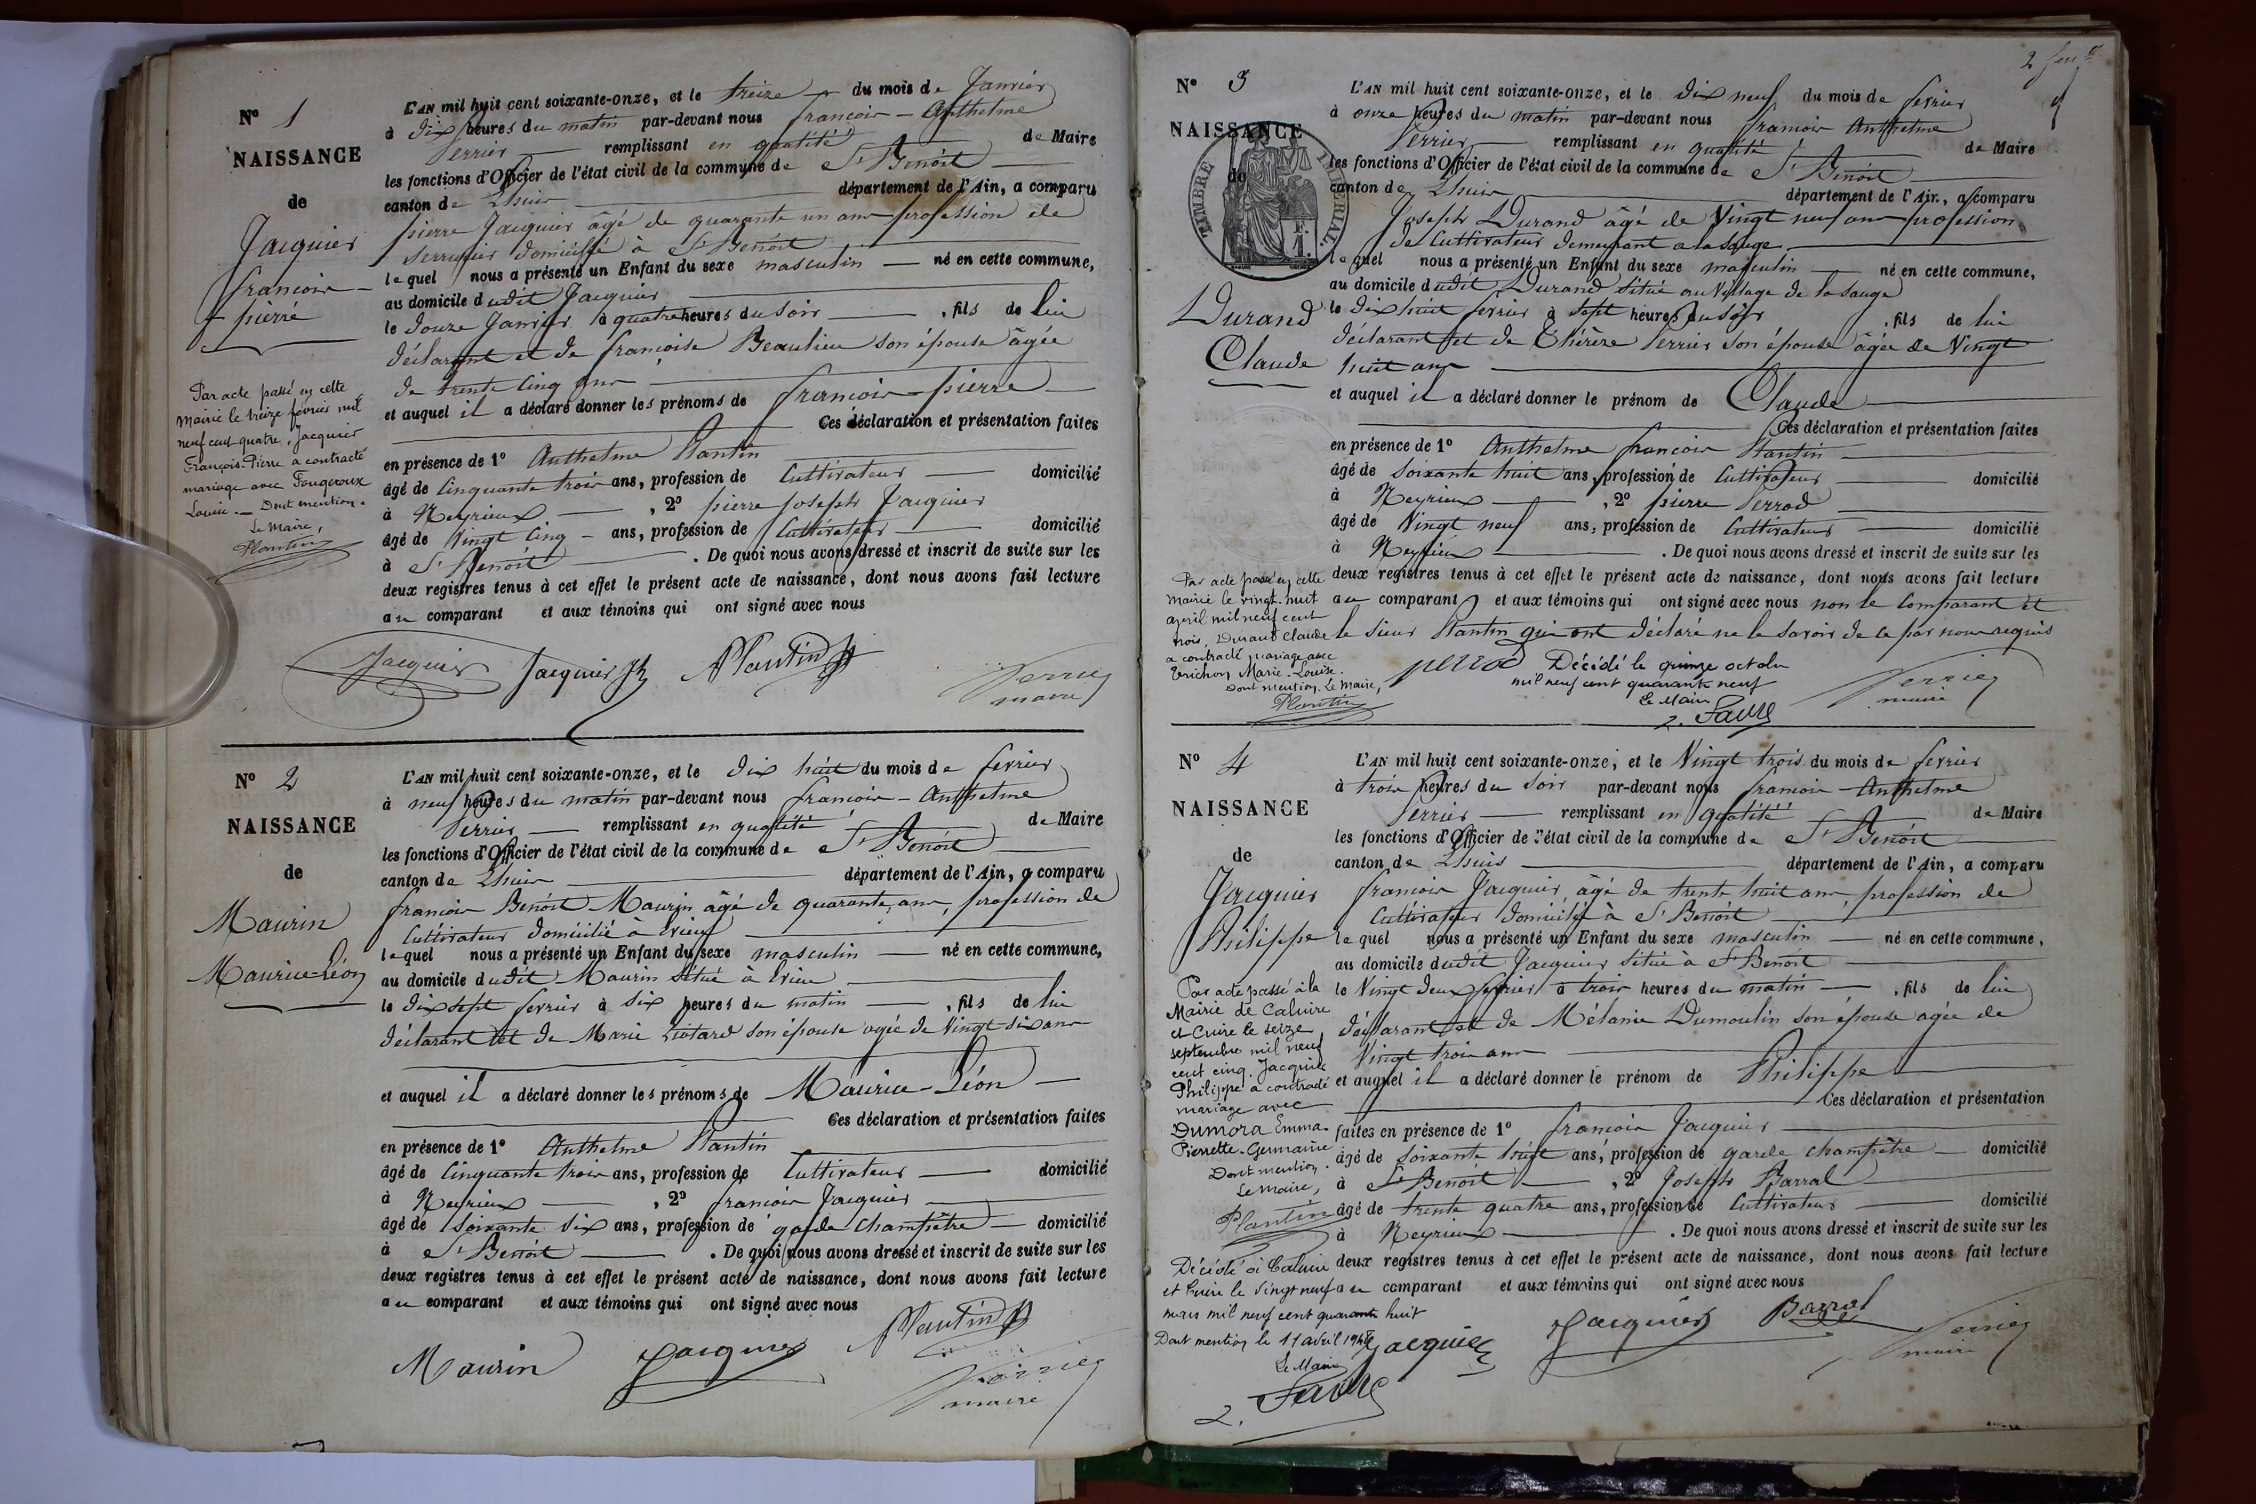 N° 1
NAISSANCE
de
Jacquier
françois-
pierre
Par acte passé en cette
mairie le treize février mil
neuf cent quatre, Jacquier
François-Pierre a contracté
mariage avec Fougeroux
Louise. — Dont mention.
Le Maire,
Plantin
L'AN mil huit cent soixante-onze, et le treize du mois de Janvier
à dix heures du matin par-devant nous françois - Anthelme
Perrier remplissant en qualité de Maire
les fonctions d'Officier de l'état civil de la commune de St Benoît
canton de Lhuis département de l'Ain, a comparu
pierre Jacquier âgé de quarante un ans profession de
serrurier domicilié à St Benoît
lequel nous a présenté un Enfant du sexe masculin né en cette commune,
au domicile dudit Jacquier
le douze Janvier à quatre heures du soir , fils de lui
déclarant et de françoise Beaulieu son épouse âgée
de trente cinq ans
et auquel il a déclaré donner les prénoms de françois-pierre
Ces déclaration et présentation faites
en présence de 1° Anthelme Plantin
âgé de cinquante trois ans, profession de Cultivateur domicilié
à Neyrieux , 2° pierre joseph Jacquier
âgé de vingt cinq ans, profession de Cultivateur domicilié
à St Benoît . De quoi nous avons dressé et inscrit de suite sur les
deux registres tenus à cet effet le présent acte de naissance, dont nous avons fait lecture
au comparant et aux témoins qui ont signé avec nous
Jacquier Jacquier Plantin Perrier
maire
N° 2
NAISSANCE
de
Maurin
Maurice-Léon
L'AN mil huit cent soixante-onze, et le dix huit du mois de fevrier
à neuf heures du matin par-devant nous françois - Anthelme
Perrier remplissant en qualité de Maire
les fonctions d'Officier de l'état civil de la commune de St Benoît
canton de Lhuis département de l'Ain, a comparu
françois Benoît Maurin âgé de quarante ans, profession de
Cultivateur domicilié à
lequel nous a présenté un Enfant du sexe masculin né en cette commune,
au domicile dudit Maurin situé à
le dix sept fevrier à six heures du matin , fils de lui
déclarant et de Marie Liotard son épouse agée de Vingt six ans
et auquel il a déclaré donner les prénoms de Maurice-Léon
Ces déclaration et présentation faites
en présence de 1° Anthelme Plantin
âgé de cinquante trois ans, profession de Cultivateur domicilié
à Neyrieux , 2° françois Jacquier
âgé de soixante six ans, profession de garde champêtre domicilié
à St Benoît . De quoi nous avons dressé et inscrit de suite sur les
deux registres tenus à cet effet le présent acte de naissance, dont nous avons fait lecture
au comparant et aux témoins qui ont signé avec nous
Maurin Jacquier Plantin
Perrier
maire
2
N° 3
NAISSANCE
de
TIMBRE IMPERIAL
Durand
Claude
Par acte passé en cette
mairie le vingt-huit
avril mil neuf cent
trois, Durand Claude
a contracté mariage avec
Trichon Marie-Louise.
Dont mention. Le Maire,
Plantin
L'AN mil huit cent soixante-onze, et le dix neuf du mois de fevrier
à onze heures du matin par-devant nous françois Anthelme
Perrier remplissant en qualité de Maire
les fonctions d'Officier de l'état civil de la commune de St Benoît
canton de Lhuis département de l'Ain, a comparu
Joseph Durand âgé de Vingt neuf ans profession
de Cultivateur demeurant a la sauge
lequel nous a présenté un Enfant du sexe masculin né en cette commune,
au domicile dudit Durand situé au Village de la sauge
le dix huit fevrier à sept heures du soir , fils de lui
déclarant et de Thérèse Perrier son épouse âgée de Vingt
huit ans
et auquel il a déclaré donner le prénom de Claude
Ces déclaration et présentation faites
en présence de 1° Anthelme françois Plantin
âgé de soixante huit ans, profession de Cultivateur domicilié
à Neyrieux , 2° pierre Perrod
âgé de Vingt neuf ans, profession de Cultivateur domicilié
à Neyrieux . De quoi nous avons dressé et inscrit de suite sur les
deux registres tenus à cet effet le présent acte de naissance, dont nous avons fait lecture
au comparant et aux témoins qui ont signé avec nous non le Comparant et
le sieur Plantin qui ont déclaré ne le savoir de ce par nous requis
perrod Décédé le quinze octobre
mil neuf cent quarante neuf
Le Maire
Favre
Perrier
maire
N° 4
NAISSANCE
de
Jacquier
Philippe
Par acte passé à la
Mairie de Caluire
et Cuire le seize
septembre mil neuf
cent cinq, Jacquier
Philippe a contracté
mariage avec
Dumora Emma-
Pierrette-Germaine
Dont mention.
Le Maire,
Plantin
Décédé à Caluire
et Cuire le vingt neuf
mars mil neuf cent quarante huit
Dont mention le 11 avril 1948
Le Maire
Favre
L'AN mil huit cent soixante-onze, et le Vingt trois du mois de fevrier
à trois heures du soir par-devant nous françois - Anthelme
Perrier remplissant en qualité de Maire
les fonctions d'Officier de l'état civil de la commune de St Benoît
canton de Lhuis département de l'Ain, a comparu
françois Jacquier âgé de trente huit ans, profession de
Cultivateur domicilié à St Benoît
lequel nous a présenté un Enfant du sexe masculin né en cette commune,
au domicile dudit Jacquier situé à St Benoît
le Vingt deux fevrier à trois heures du matin , fils de lui
déclarant et de Mélanie Dumoulin son épouse agée de
Vingt trois ans
et auquel il a déclaré donner le prénom de Philippe
Ces déclaration et présentation
faites en présence de 1° françois Jacquier
âgé de soixante ans, profession de garde champêtre domicilié
à St Benoît , 2° Joseph Barral
âgé de trente quatre ans, profession de Cultivateur domicilié
à Neyrieux . De quoi nous avons dressé et inscrit de suite sur les
deux registres tenus à cet effet le présent acte de naissance, dont nous avons fait lecture
au comparant et aux témoins qui ont signé avec nous
Jacquier Jacquier Barral Perrier
maire